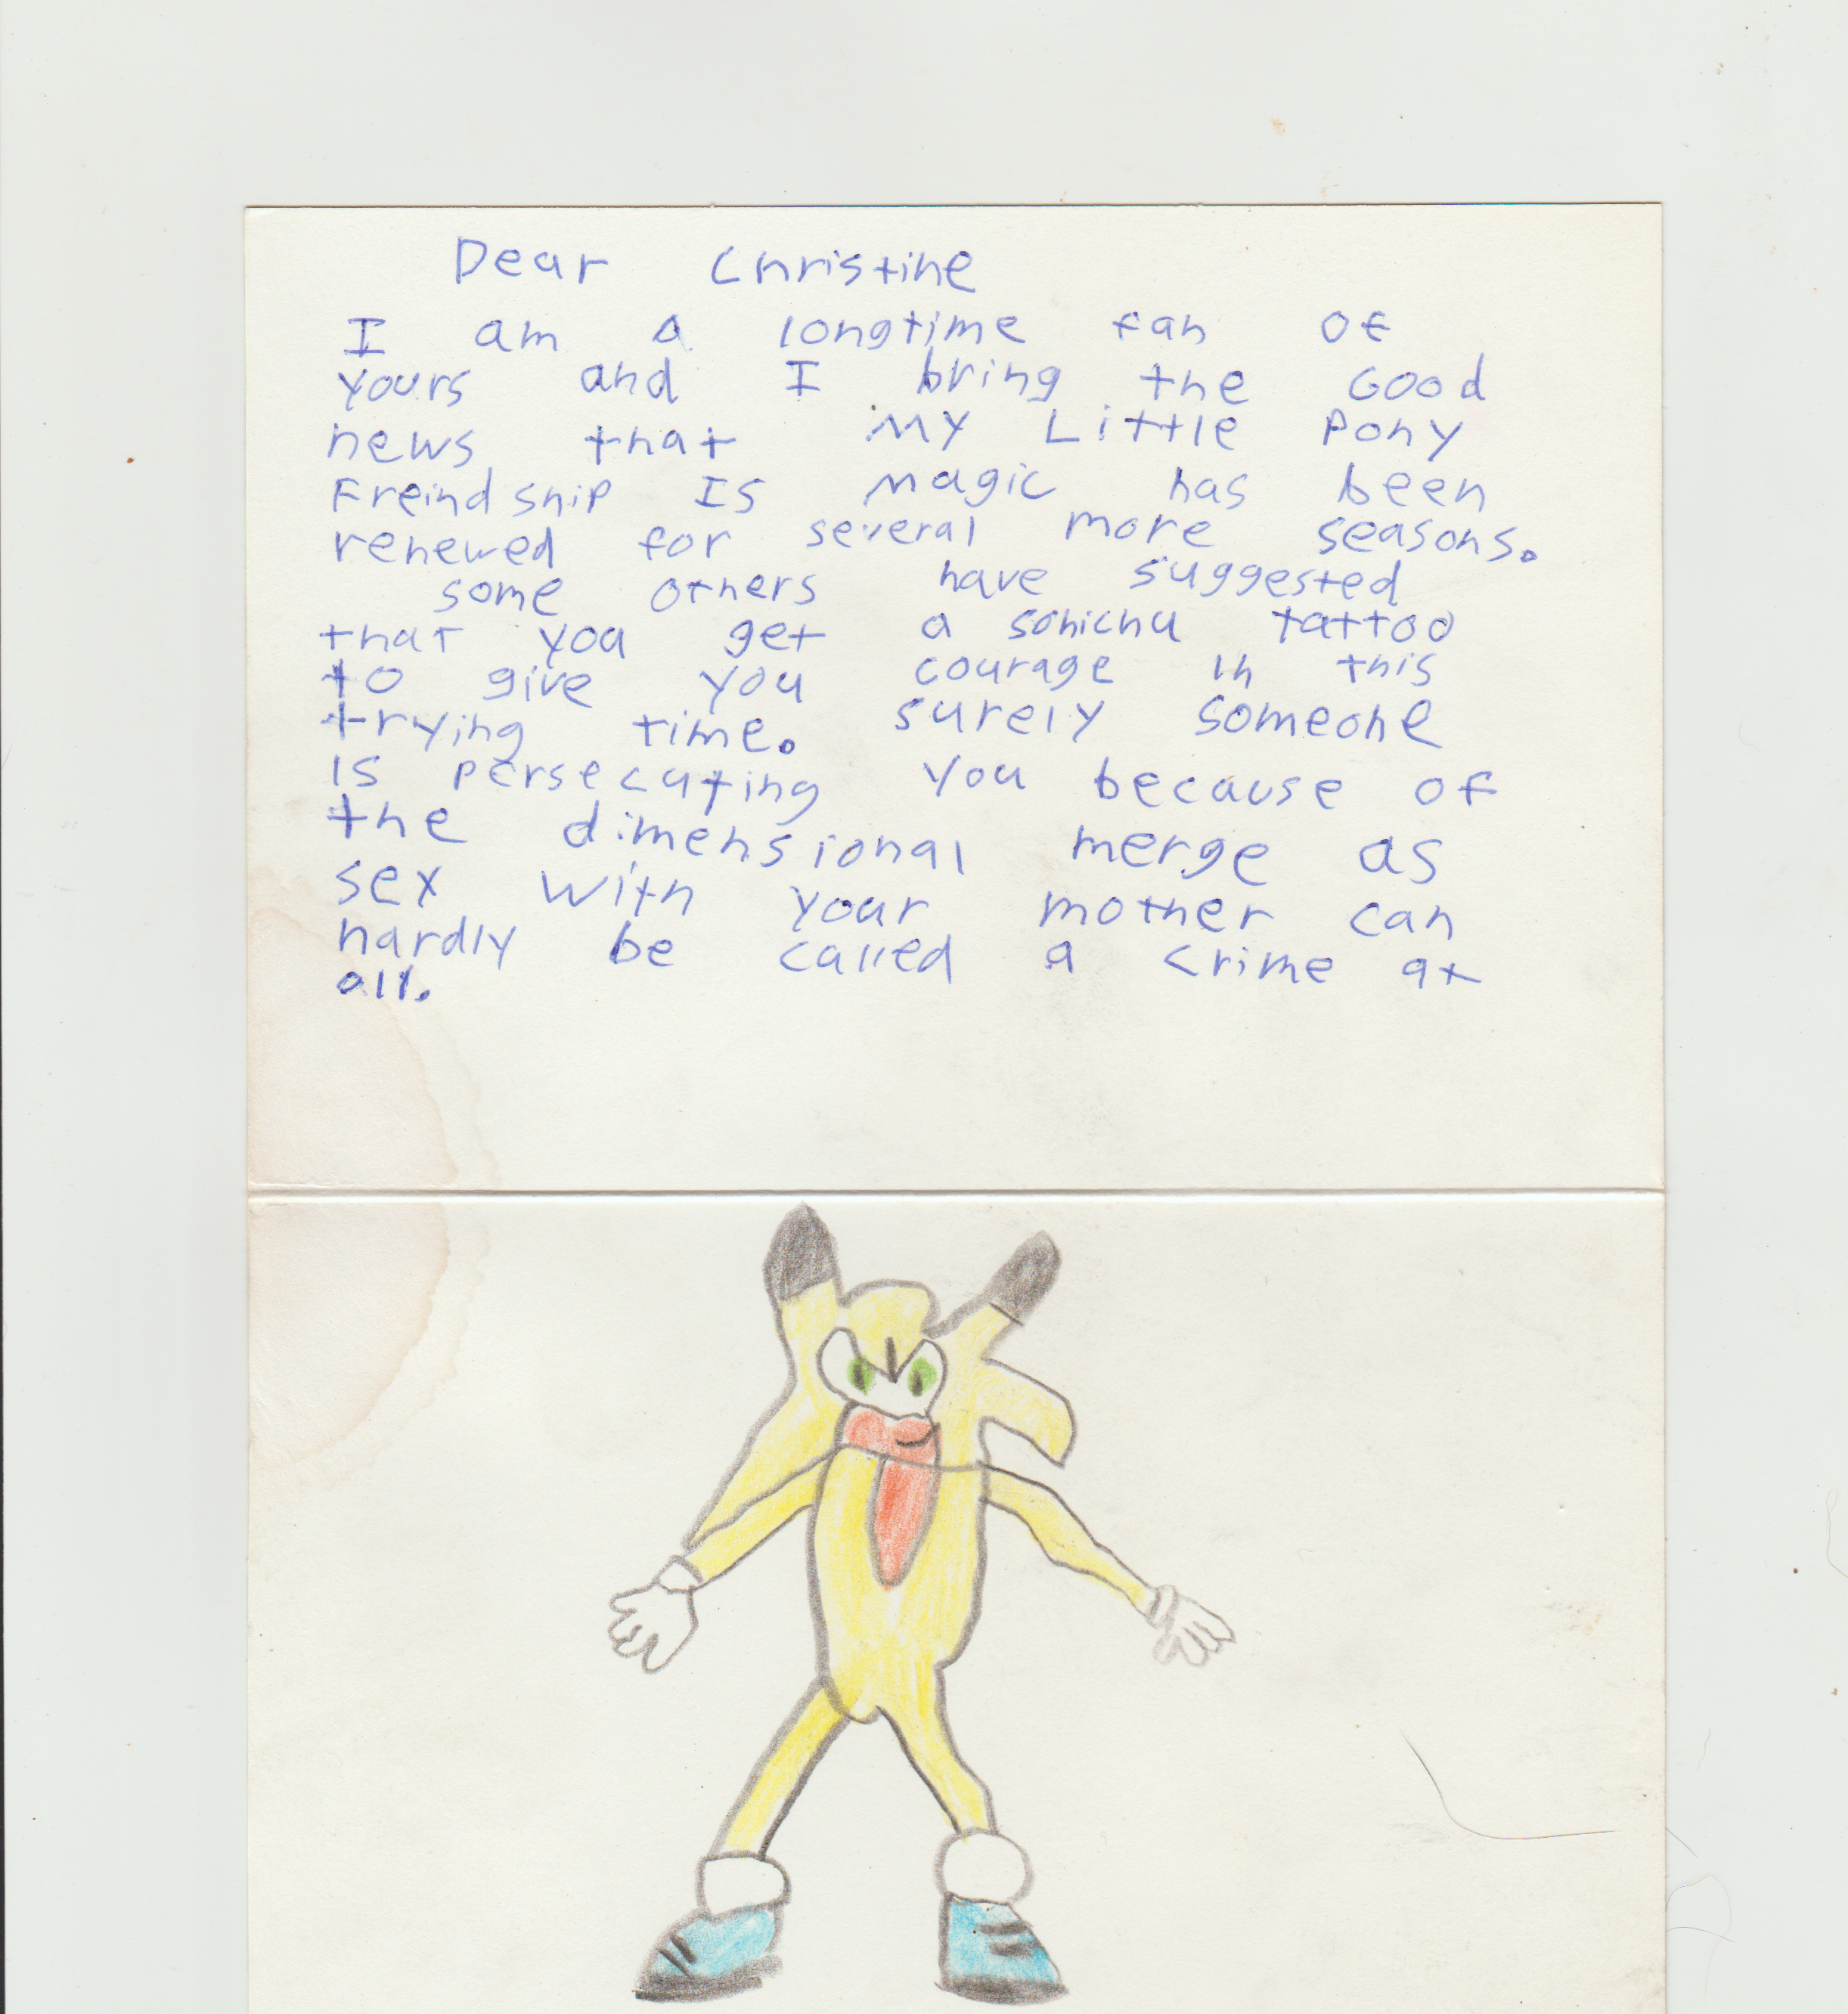 Dear Christine
I am a longtime fan of
yours and I bring the Good
news that My Little Pony
Freind ship Is magic has been
renewed for several more seasons.
some others have suggested
that you get a sonichu tattoo
to give you courage in this
trying time. surely someone
is persecuting you because of
the dimensional merge as
sex with your mother can
hardly be called a crime at
all.